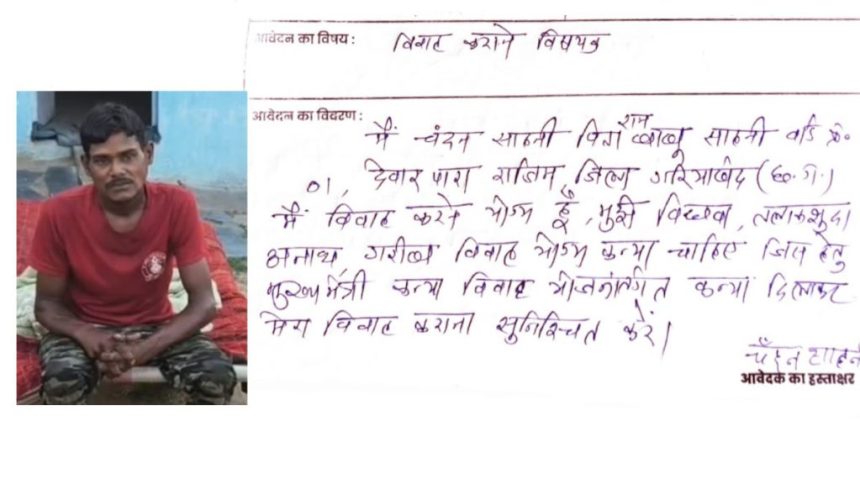 आवेदन का विषय : विवाह कराने विषयक
आवेदन का विवरण :
मैं चंदन साहनी पिता राम बाबू साहनी वार्ड क्रं.
01, दिवार पारा राजिम जिला गरियाबंद (छ.ग.)
मैं विवाह करने योग्य हूँ, मुझे विधवा, तलाकशुदा
अनाथ, गरीब विवाह योग्य कन्या चाहिए जिस हेतु
मुख्यमंत्री कन्या विवाह योजनांतर्गत कन्या दिलाकर
मेरा विवाह कराना सुनिश्चित करें।
चंदन साहनी
आवेदक का हस्ताक्षर